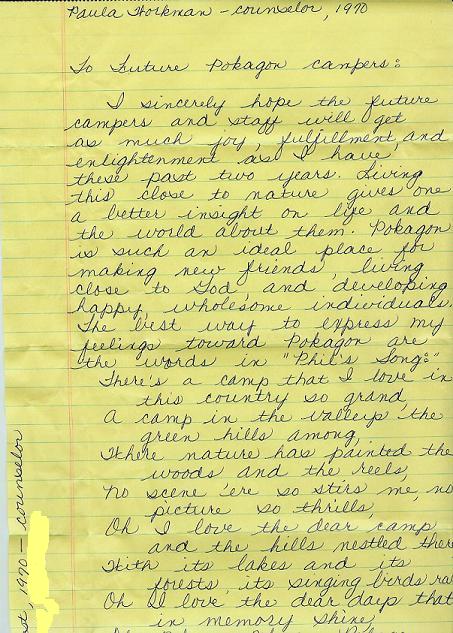 Paula Workman - counselor, 1970
To Future Pokagon campers:
I sincerely hope the future
campers and staff will get
as much joy, fulfillment, and
enlightenment as I have,
these past two years. Living
this close to nature gives one
a better insight on life and
the world about them. Pokagon
is such an ideal place for
making new friends, living
close to God, and developing
happy, wholesome individuals.
The best way to express my
feelings toward Pokagon are
the words in "Phil's Song:"
There's a camp that I love in
this country so grand,
A camp in the valleys the
green hills among,
Where nature has painted the
woods and the reels,
No scene 'ere so stirs me, no
picture so thrills,
Oh I love the dear camp
and the hills nestled there
With its lakes and its
forests, its singing birds ra
Oh I love the dear days that
in memory shine,
st, 1970 - counselor